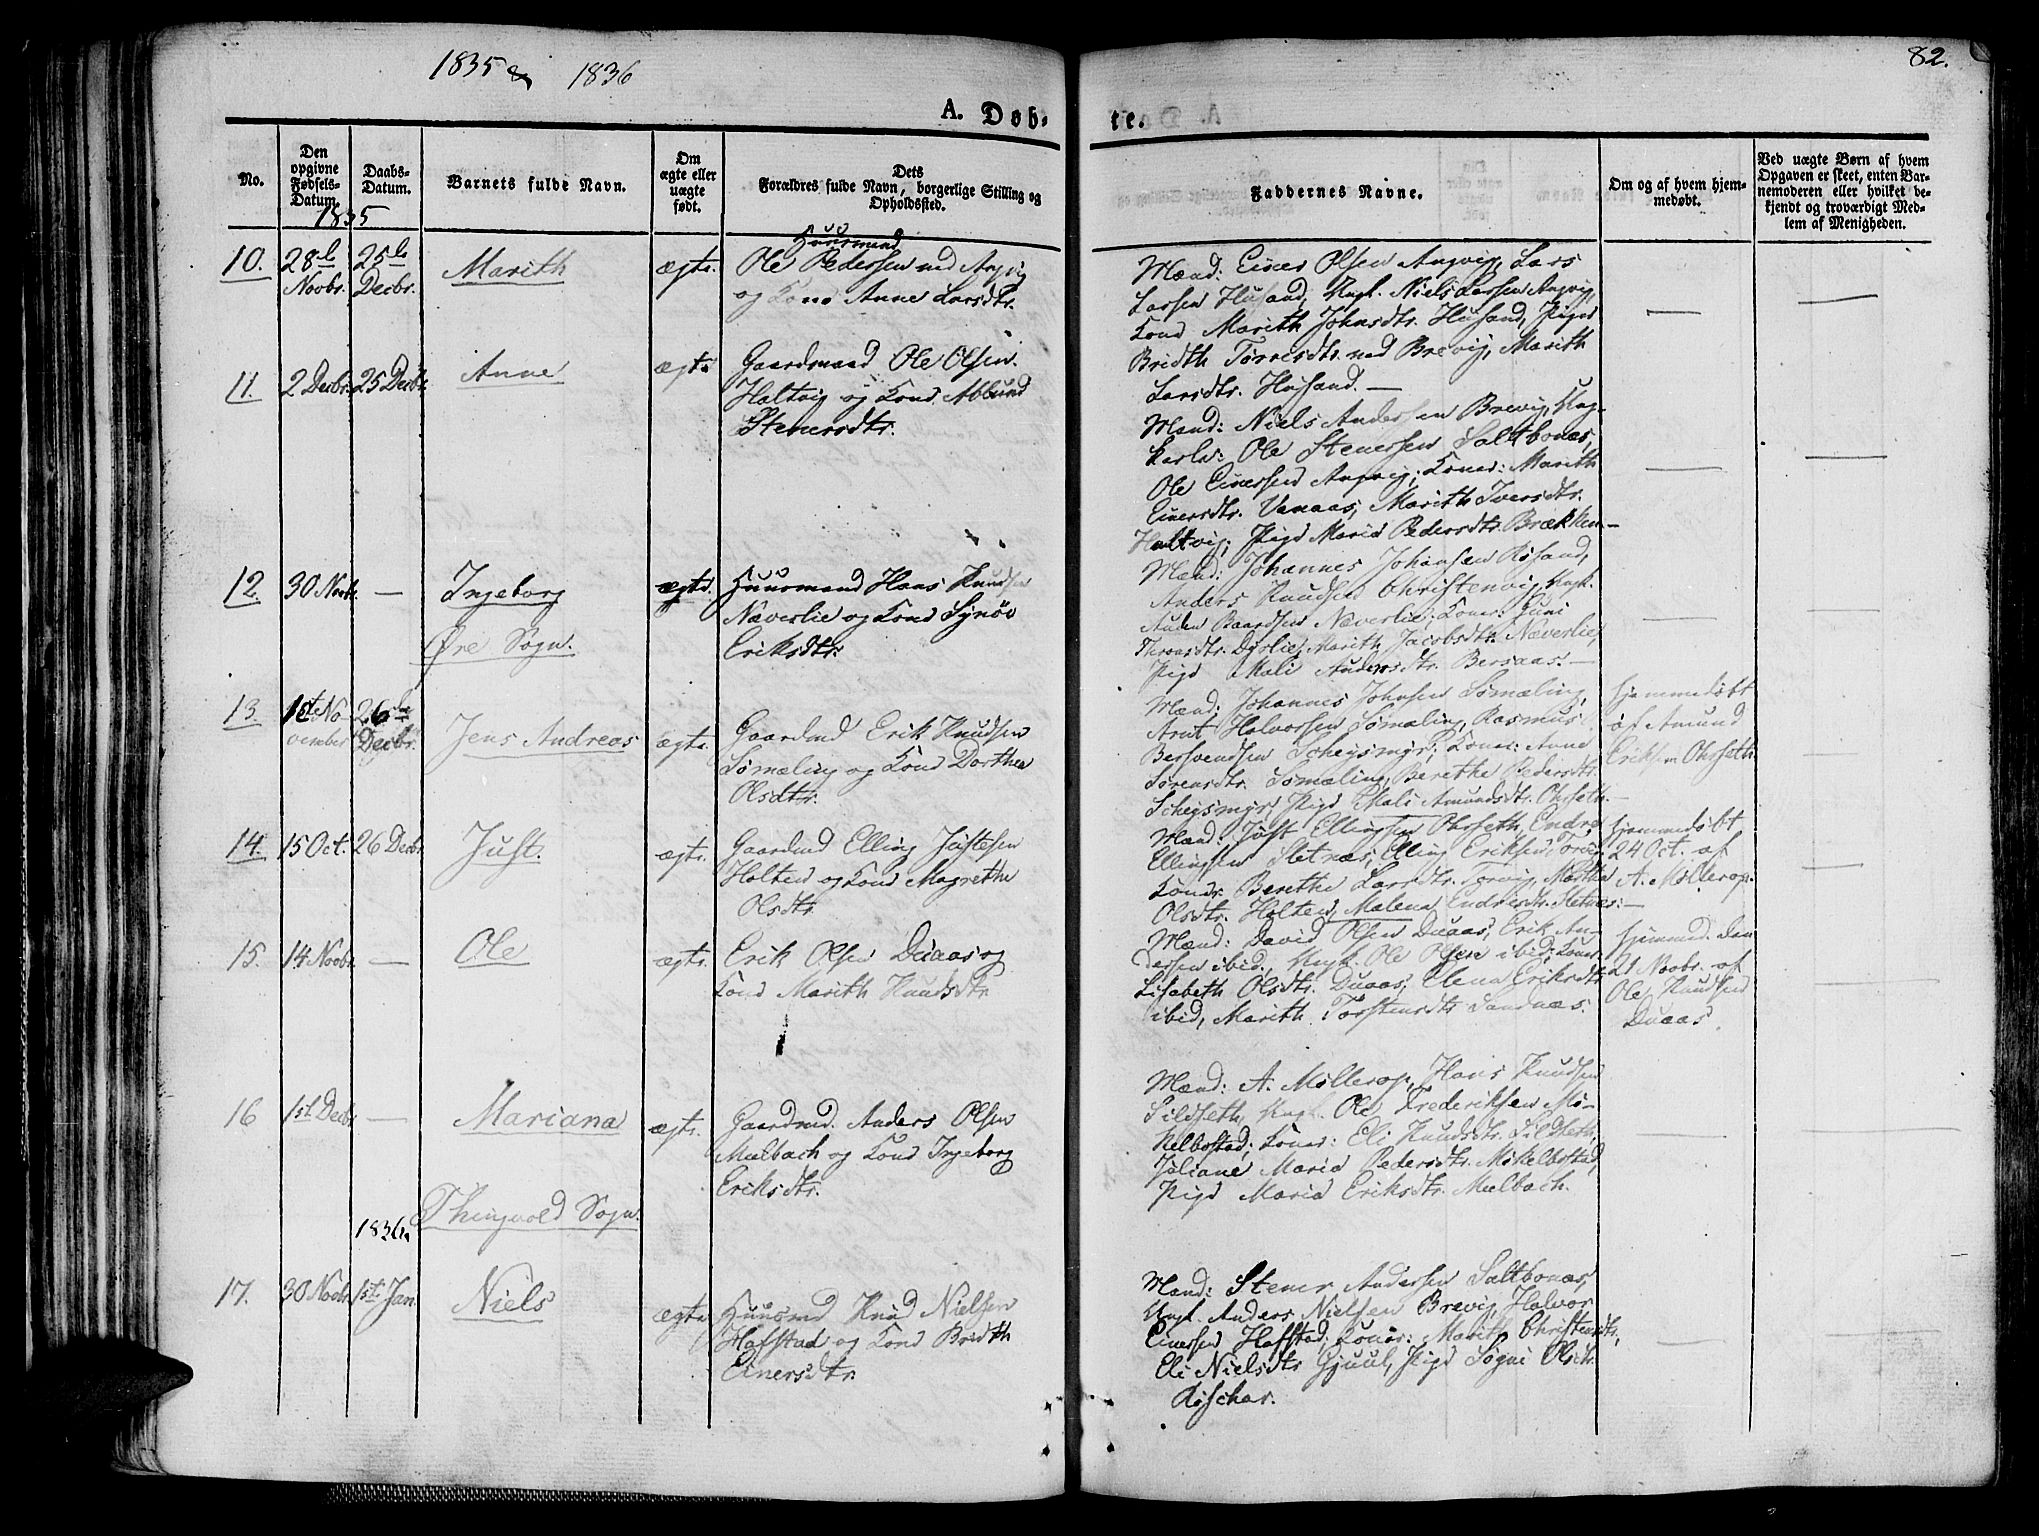 1835 & 1836
82.
A. Døb-
te.
No.
Den opgivne Fødsels-Datum.
Daabs-Datum.
Barnets fulde Navn.
Om ægte eller uægte født.
Dets Forældres fulde Navn, borgerlige Stilling og Opholdssted.
Faddernes Navne.
Om og af hvem hjem-medøbt.
Ved uægte Børn af hvem Opgaven er skeet, enten Bar-nemoderen eller hvilket be-kjendt og troværdigt Med-lem af Menigheden.
1835
10.
28de Novbr.
25de Decbr.
Marith
ægte.
Huusmand
Ole Pedersen ned Angvig
og Kone Anne Larsdtr.
Mænd: Einer Olsen Angvig, Lars
Larsen Husand, Ungk. Niels Larsen Angvig,
Kone Marith Johnsdtr. Husand, Pige
Bridth Torresdtr. ned Brevig, Marith
Larsdtr. Husand. —
11.
2 Decbr.
25 Decbr.
Anne
ægte
Gaardmand Ole Olsen
Holtvig og Kone Ablund
Stenersdtr.
Mænd: Niels Andersen Brevig, Ung-
karle: Ole Stenersen Saltbonæs,
Ole Einersen Angvig; Koner: Marith
Einersdtr. Vanaas, Marith Iversdtr.
Holtvig; Pige Marie Pedersdtr. Brækken —
12.
30 Novbr.
—
Ingeborg
Øre Sogn.
ægte.
Huusmand Hans Knudsen
Næverlie og Kone Synøv
Eriksdtr.
Mænd: Johannes Johansen Røsand,
Anders Knudsen Christenvig, Ungk.
Auden Baardsen Næverlie; Koner: Guni
Throndsdtr. Dyrlie, Marith Jacobsdtr. Næverlie,
Pige Mali Andersdtr. Bersaas. —
13.
1st No-
vember
26de
Decbr.
Jens Andreas
ægte.
Gaardmd Erik Knudsen
Sømæling og Kone Dorthea
Olsdtr.
Mænd: Johannes Johnsen Sømæling,
Arnt Halvorsen Sømæling, Rasmus
Bersvendsen Scheysmyr; Koner: Anne
Sørensdtr. Sømæling, Berethe Pedersdtr.
Scheysmyr, Pige Mali Amundsdtr. Ohrseth. —
hjemmedøbt
af Amund
Eriksen Ohrseth.
14.
15 Oct.
26 Decbr.
Just.
ægte.
Gaardmd Elling Justesen
Holten og Kone Magrethe
Olsdtr.
Mænd: Just Ellingsen Ohrseth, Endre
Ellingsen Sletnæs, Elling Eriksen Torvig
Koner Berethe Larsdtr. Torvig, Martha
Olsdtr. Holten, Malena Endresdtr. Sletnæs. —
hjemmedøbt
24 Oct. af
A. Møllerop.
15.
14 Novbr.
—
Ole
ægte.
Erik Olsen Duaas og
Kone Marith Knudsdtr.
Mænd: David Olsen Duaas, Erik An-
dersen ibid., Ungk. Ole Olsen ibid; Koner
Lisabeth Olsdtr. Duaas, Elena Eriksdtr.
ibid, Marith Torstensdtr. Sandnæs.
hjemmed. den
21 Novbr. af
Ole Knudsen
Duaas.
16
1st Decbr.
—
Mariana
ægte.
Gaardmd. Anders Olsen
Mulbach og Kone Ingeborg
Eriksdtr.
Mænd: A. Møllerop, Hans Knudsen
Sildseth, Ungk. Ole Frederiksen Mi-
kelbostad; Koner: Eli Knudsdtr. Sildseth,
Joliane Marie Pedersdtr. Mikelbostad,
Pige Marie Eriksdtr. Mulbach.
Thingvold Sogn.
1836.
17.
30 Novbr.
1st Jan
Niels
ægte
Huusmd Knud Nielsen
Hafstad og Kone Bridth
Einersdtr.
Mænd: Stener Andersen Saltbonæs,
Ungk. Anders Nielsen Brevig, Halvor
Einersen Hafstad; Koner: Marith Christensdtr,
Eli Nielsdtr. Gjuul, Pige Sogni Olsdtr.
Røschar.